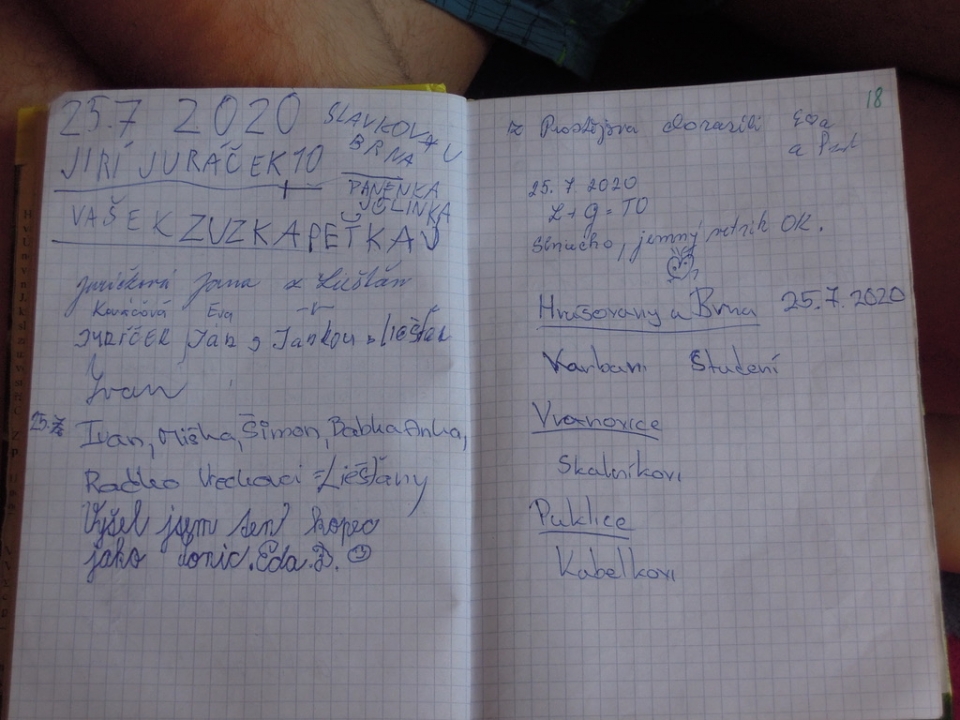 25.7 2020
SLAVKOV U
BRNA
JIŘÍ JURÁČEK 10
PANENKA
JOLINKA
VAŠEK ZUZKA PEŤKA
Jana z
Kováčová Eva
Ján s Jankou
Ivan
25.7.
Ivan, Miška, Šimon, Babka Anka,
Radko Liešťany
Vyšel jsem ten kopec
jako lonic. Eda. B.
18
z Prostějova dorazili Eva
a
25. 7. 2020
L + G = TO
jemný OK.
Hrušovany u Brna 25.7.2020
Karbani Studení
Vranovice
Skalníkovi
Puklice
Kabelkovi